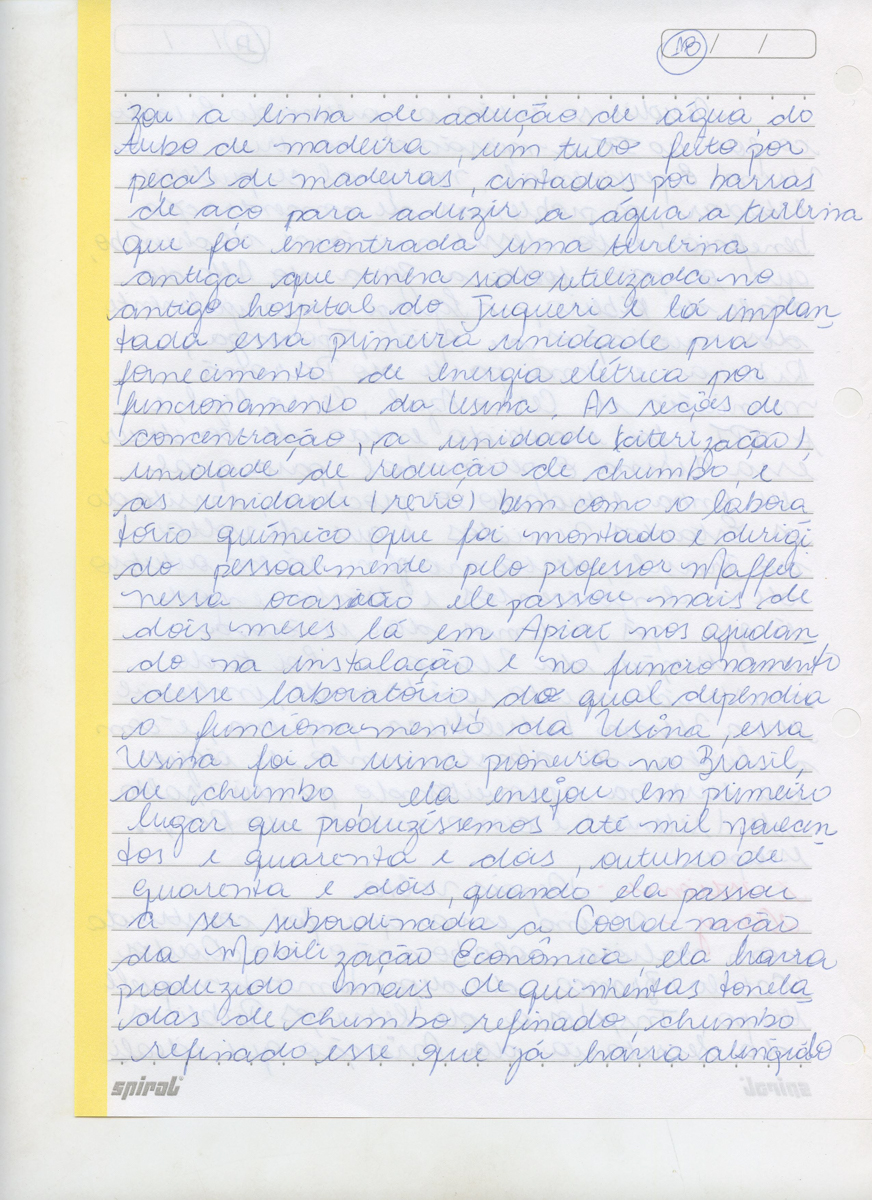 18 / /
zou a linha de adução de água, do
tubo de madeira, um tubo feito por
peças de madeiras, cintadas por barras
de aço para aduzir a água a turbina
que foi encontrada uma turbina
antiga que tinha sido utilizada no
antigo hospital do Juqueri e lá implan
tada essa primeira unidade pra
fornecimento de energia elétrica por
funcionamento da Usina. As seções de
concentração, a unidade (citerização),
unidade de redução de chumbo, e
as unidade (rerrio) bem como o labora
tório químico que foi montado e dirigi
do pessoalmente pelo professor Maffei
nessa ocasião ele passou mais de
dois meses lá em Apiaí nos ajudan
do na instalação e no funcionamento
desse laboratório, do qual dependia
o funcionamento da Usina, essa
Usina foi a usina pioneira no Brasil,
de chumbo, ela ensejou em primeiro
lugar que produzíssemos até mil novecen
tos e quarenta e dois, outubro de
quarenta e dois, quando ela passou
a ser subordinada a Coordenação
da Mobilização Econômica, ela havia
produzido mais de quinhentas tonela
das de chumbo refinado, chumbo
refinado esse que já havia atingido
spiral